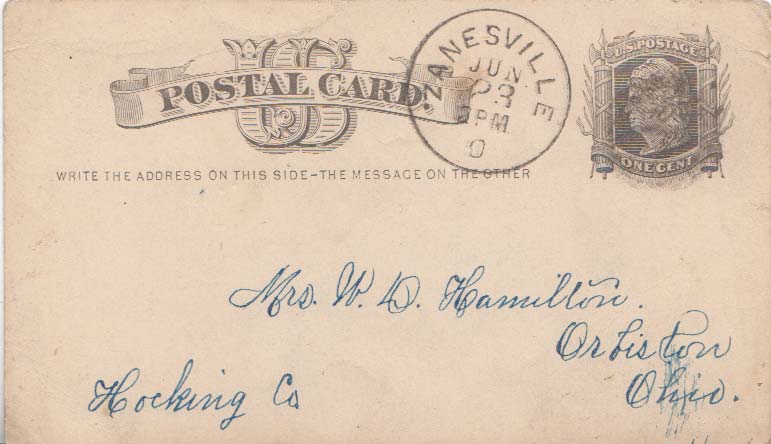 US
POSTAL CARD.
WRITE THE ADDRESS ON THIS SIDE-THE MESSAGE ON THE OTHER
ZANESVILLE
JUN
23
PM
O
U.S. POSTAGE
ONE CENT
Mrs. W. D. Hamilton.
Orbiston
Hocking Co
Ohio.